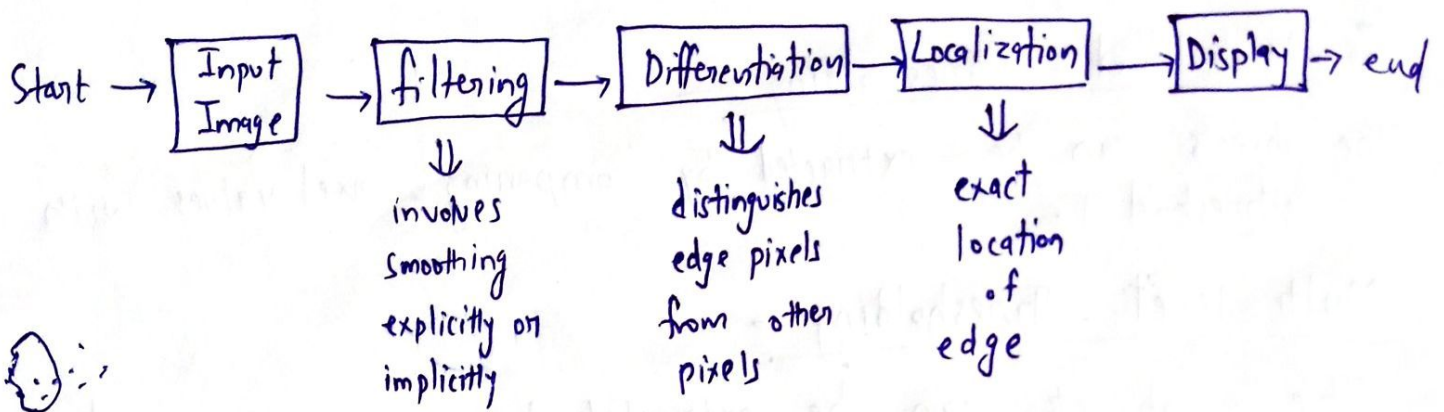 Start → Input Image → filtering → Differentiation → Localization → Display → end
involves
smoothing
explicitly or
implicitly
distinguishes
edge pixels
from other
pixels
exact
location
of
edge